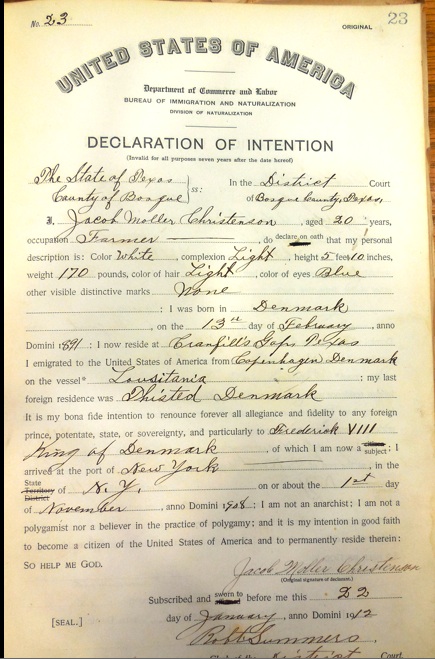 No. 23 ORIGINAL 23
UNITED STATES OF AMERICA
Department of Commerce and Labor
BUREAU OF IMMIGRATION AND NATURALIZATION
DIVISION OF NATURALIZATION
DECLARATION OF INTENTION
(Invalid for all purposes seven years after the date hereof)
The State of Texas
County of Bosque ss: In the District Court
of Bosque County, Texas,
I, Jacob Moller Christenson, aged 20 years,
occupation Farmer, do declare on oath that my personal
description is: Color White, complexion Light, height 5 feet 10 inches,
weight 170 pounds, color of hair Light, color of eyes Blue
other visible distinctive marks None
: I was born in Denmark
, on the 13th day of February, anno
Domini 1891: I now reside at Cranfill's Gap, Texas
I emigrated to the United States of America from Copenhagen Denmark
on the vessel* Lousitania : my last
foreign residence was Thisted Denmark
It is my bona fide intention to renounce forever all allegiance and fidelity to any foreign
prince, potentate, state, or sovereignty, and particularly to Frederick VIII
King of Denmark, of which I am now a subject: I
arrived at the port of New York, in the
State Territory District of N. Y. on or about the 1st day
of November, anno Domini 1908: I am not an anarchist: I am not a
polygamist nor a believer in the practice of polygamy: and it is my intention in good faith
to become a citizen of the United States of America and to permanently reside therein:
SO HELP ME GOD.
Jacob Moller Christenson
(Original signature of declarant.)
Subscribed and sworn to before me this 22
[SEAL.] day of January, anno Domini 1912
Robt Summers
District Court